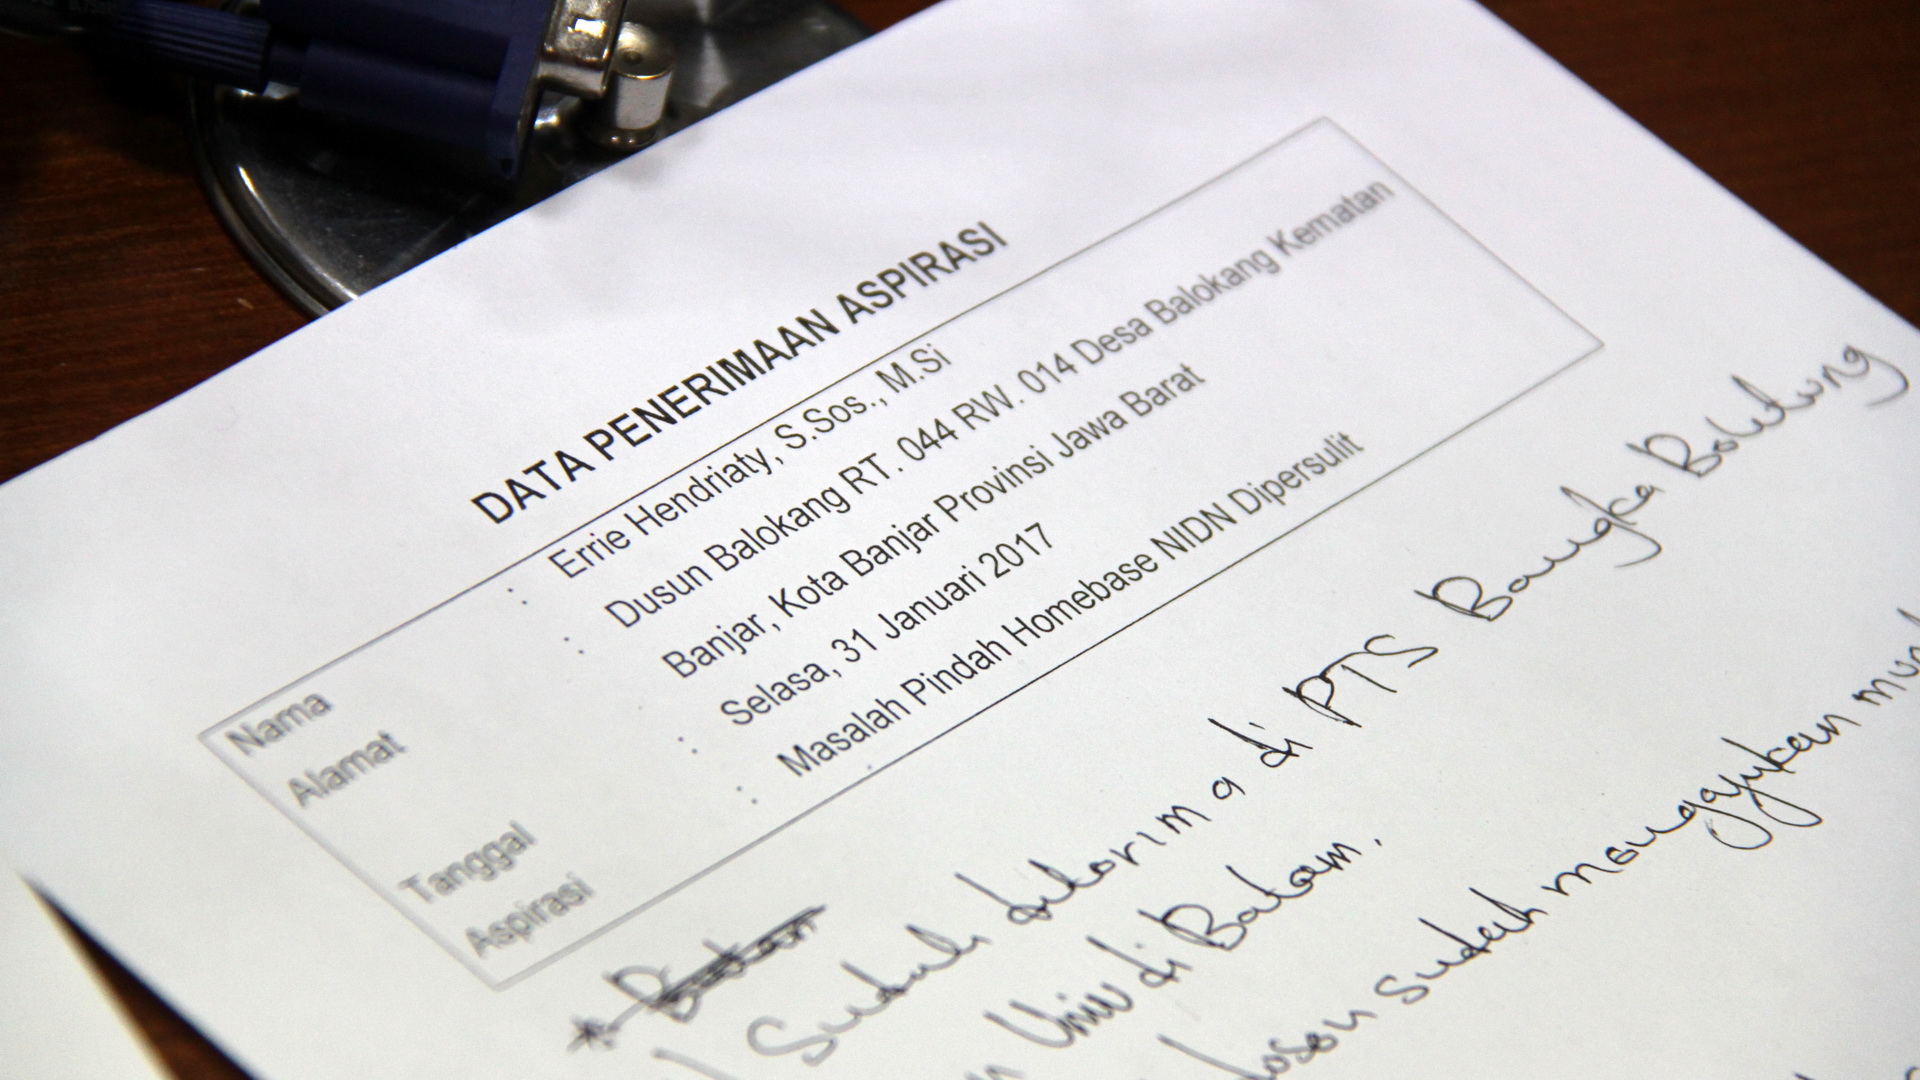 DATA PENERIMAAN ASPIRASI
Nama : Errie Hendriaty, S.Sos., M.Si
Alamat : Dusun Balokang RT. 044 RW. 014 Desa Balokang Kematan
Banjar, Kota Banjar Provinsi Jawa Barat
Tanggal : Selasa, 31 Januari 2017
Aspirasi : Masalah Pindah Homebase NIDN Dipersulit
Sudah diterima di PTS Bangka Belitung
Univ di Batam.
dosen sudah mengajukan